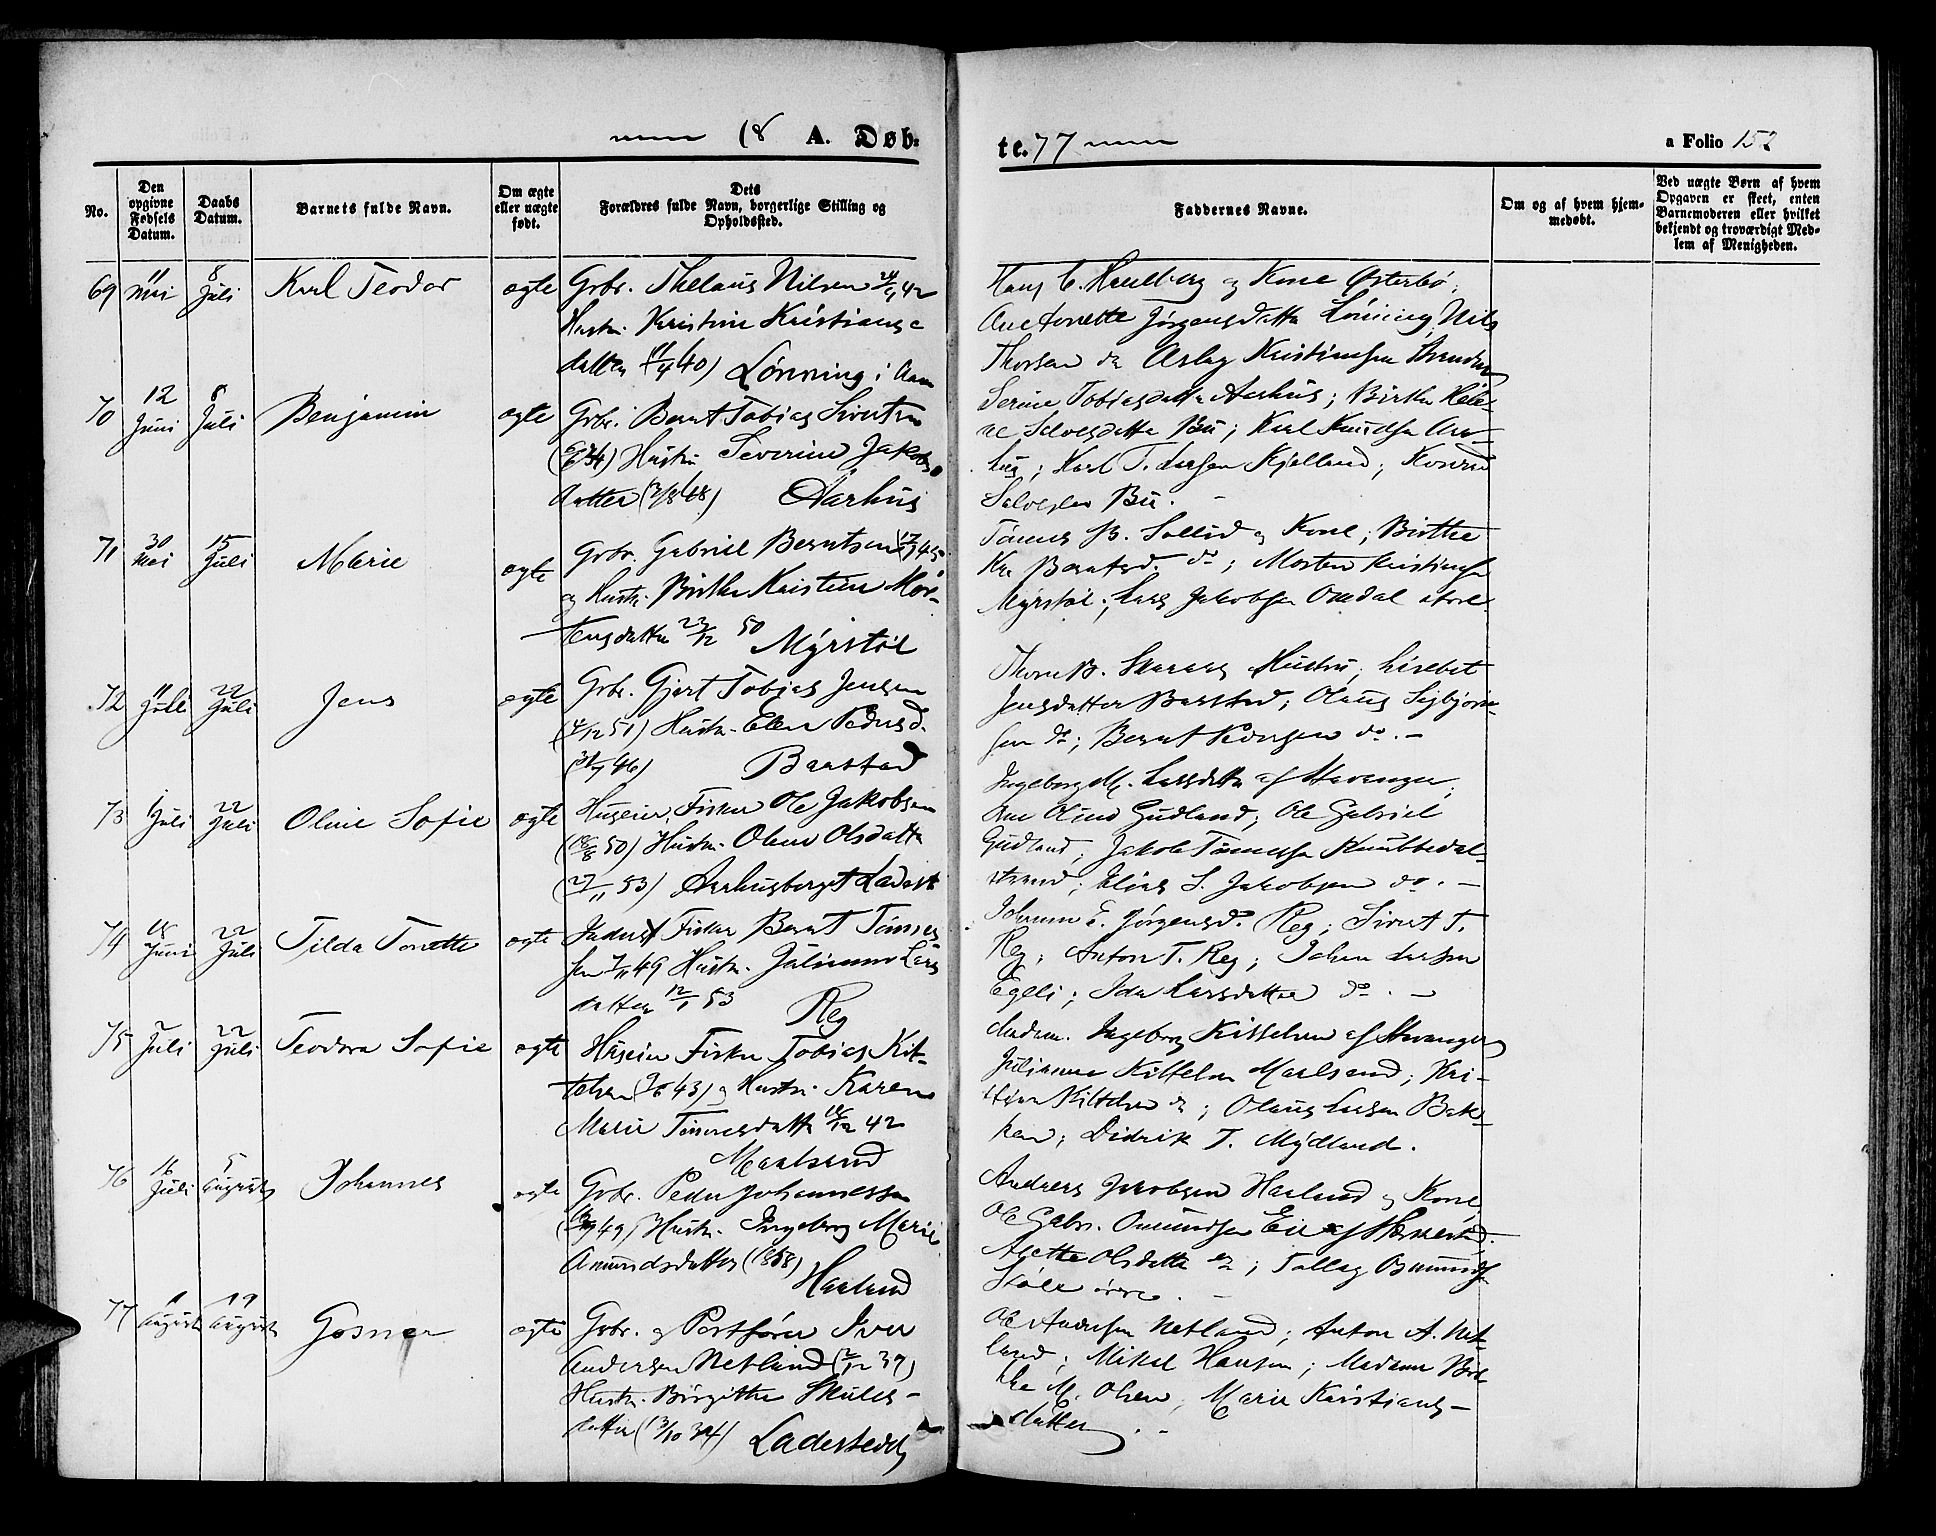 18 A. Døb-
te. 77
a Folio 152
No.
Den opgivne Fødsels Datum.
Daabs Datum.
Barnets fulde Navn.
Om ægte eller uægte født.
Dets Forældres fulde Navn, borgerlige Stilling og Opholdssted.
Faddernes Navne.
Om og af hvem hjemmedøbt.
Ved uægte Børn af hvem Opgaven er skeet, enten Barnemoderen eller hvilket bekjendt og troværdigt Medlem af Menigheden.
69 11 Mai 8 Juli Karl Teodor ægte Grbr. Thelaus Nilsen 42
Hustr. Kristine Kristians-
datter (11/4 40) Lønning i Aam
og Kone Østerbø;
Ane Tonette Jørgensdatta Lønning, Nils
Thorsen do Aslag Kristiansen
70 12 Juni 8 Juli Benjamin ægte Grbr. Bernt Tobias Sivertsen
34) Hustru Severine Jakobs-
datter (48) Aarhus
Serine Tobiasdatter Aarhus; Birthe Hele-
ne Salvesdatta Bu; Karl Knudsen Aar-
hus; Karl T. Larsen Kjelland; Konrad
Salvesen Bu. -
71 30 Mai 15 Juli Marie ægte Grbr. Gabriel Berntsen 45
og Hustr. Birthe Kristine Mor-
tensdatter 23/12 50 Myrstøl
Tønnes B. Sollid og Kone; Birthe
Berntsd. do; Morten Kristiansen
Myrstøl; Lars Jakobsen Omdal store.
72 11 Juli 22 Juli Jens ægte Grbr. Gjert Tobias Jensen
(4/12 51) Hustr. Elen Pedersd.
46) Barstad
B. Hustru; Lisebet
Jensdatter Barstad; Olaus Sigbjørn-
sen do; Bernt do. -
73 1 Juli 22 Juli Oline Sofie ægte Huseier, Fisker Ole Jakobsen
50) Hustr. Olene Olsdatta
(27/11 53) Aarhusberget Ladest
Ingeborg M. Larsdatta af Stavanger;
Ane Oline Gudland; Ole Gabriel
Gudland; Jakob Tønnessen Knubbedal-
strand; Elias S. Jakobsen do. -
74 18 Juni 22 Juli Tilda Tonette ægte Inderst Fisker Bernt Tønnes-
sen 7/11 49 Hustr. Juliane Lars
datter 12/1 53 Reg
E. Jørgensd. Reg; Sivert T.
Reg; Anton T. Reg; Johan Larsen
Egeli; Ida Larsdatter do. -
75 2 Juli 22 Juli Teodora Sofie ægte Huseier Fisker Tobias Kit-
telsen 43) og Hustr. Karen
Marie Tønnesdatta 42
Maalsund
Madam. Ingeborg Kittelsen af Stavanger
Juliane Kittelsen Maalsund; Kri-
stian Kittelsen do; Olaus Larsen Bak-
ken; Didrik T. Mydland.
76 16 Juli 5 August Johannes ægte Grbr. Peder Johannessen
49) Hustr. Ingeborg Marie
Amundsdatter (58)
Haaland
Andreas Jakobsen Haaland og Kone,
Ole Gabr. Omundsen Eie af
Anette Olsdatta do; Tallag Osmunds
77 1 August 19 August Gosner ægte Grbr. og Postfører Iver
Andersen Netland (2/12 39)
Hustr. Børgitte Skules-
datter (13/10 34) Ladestedet
Ole Andersen Netland; Anton A. Net-
land; Mikal Hansen; Madame Bir-
the M. Olsen; Marie Kristians-
datter. -